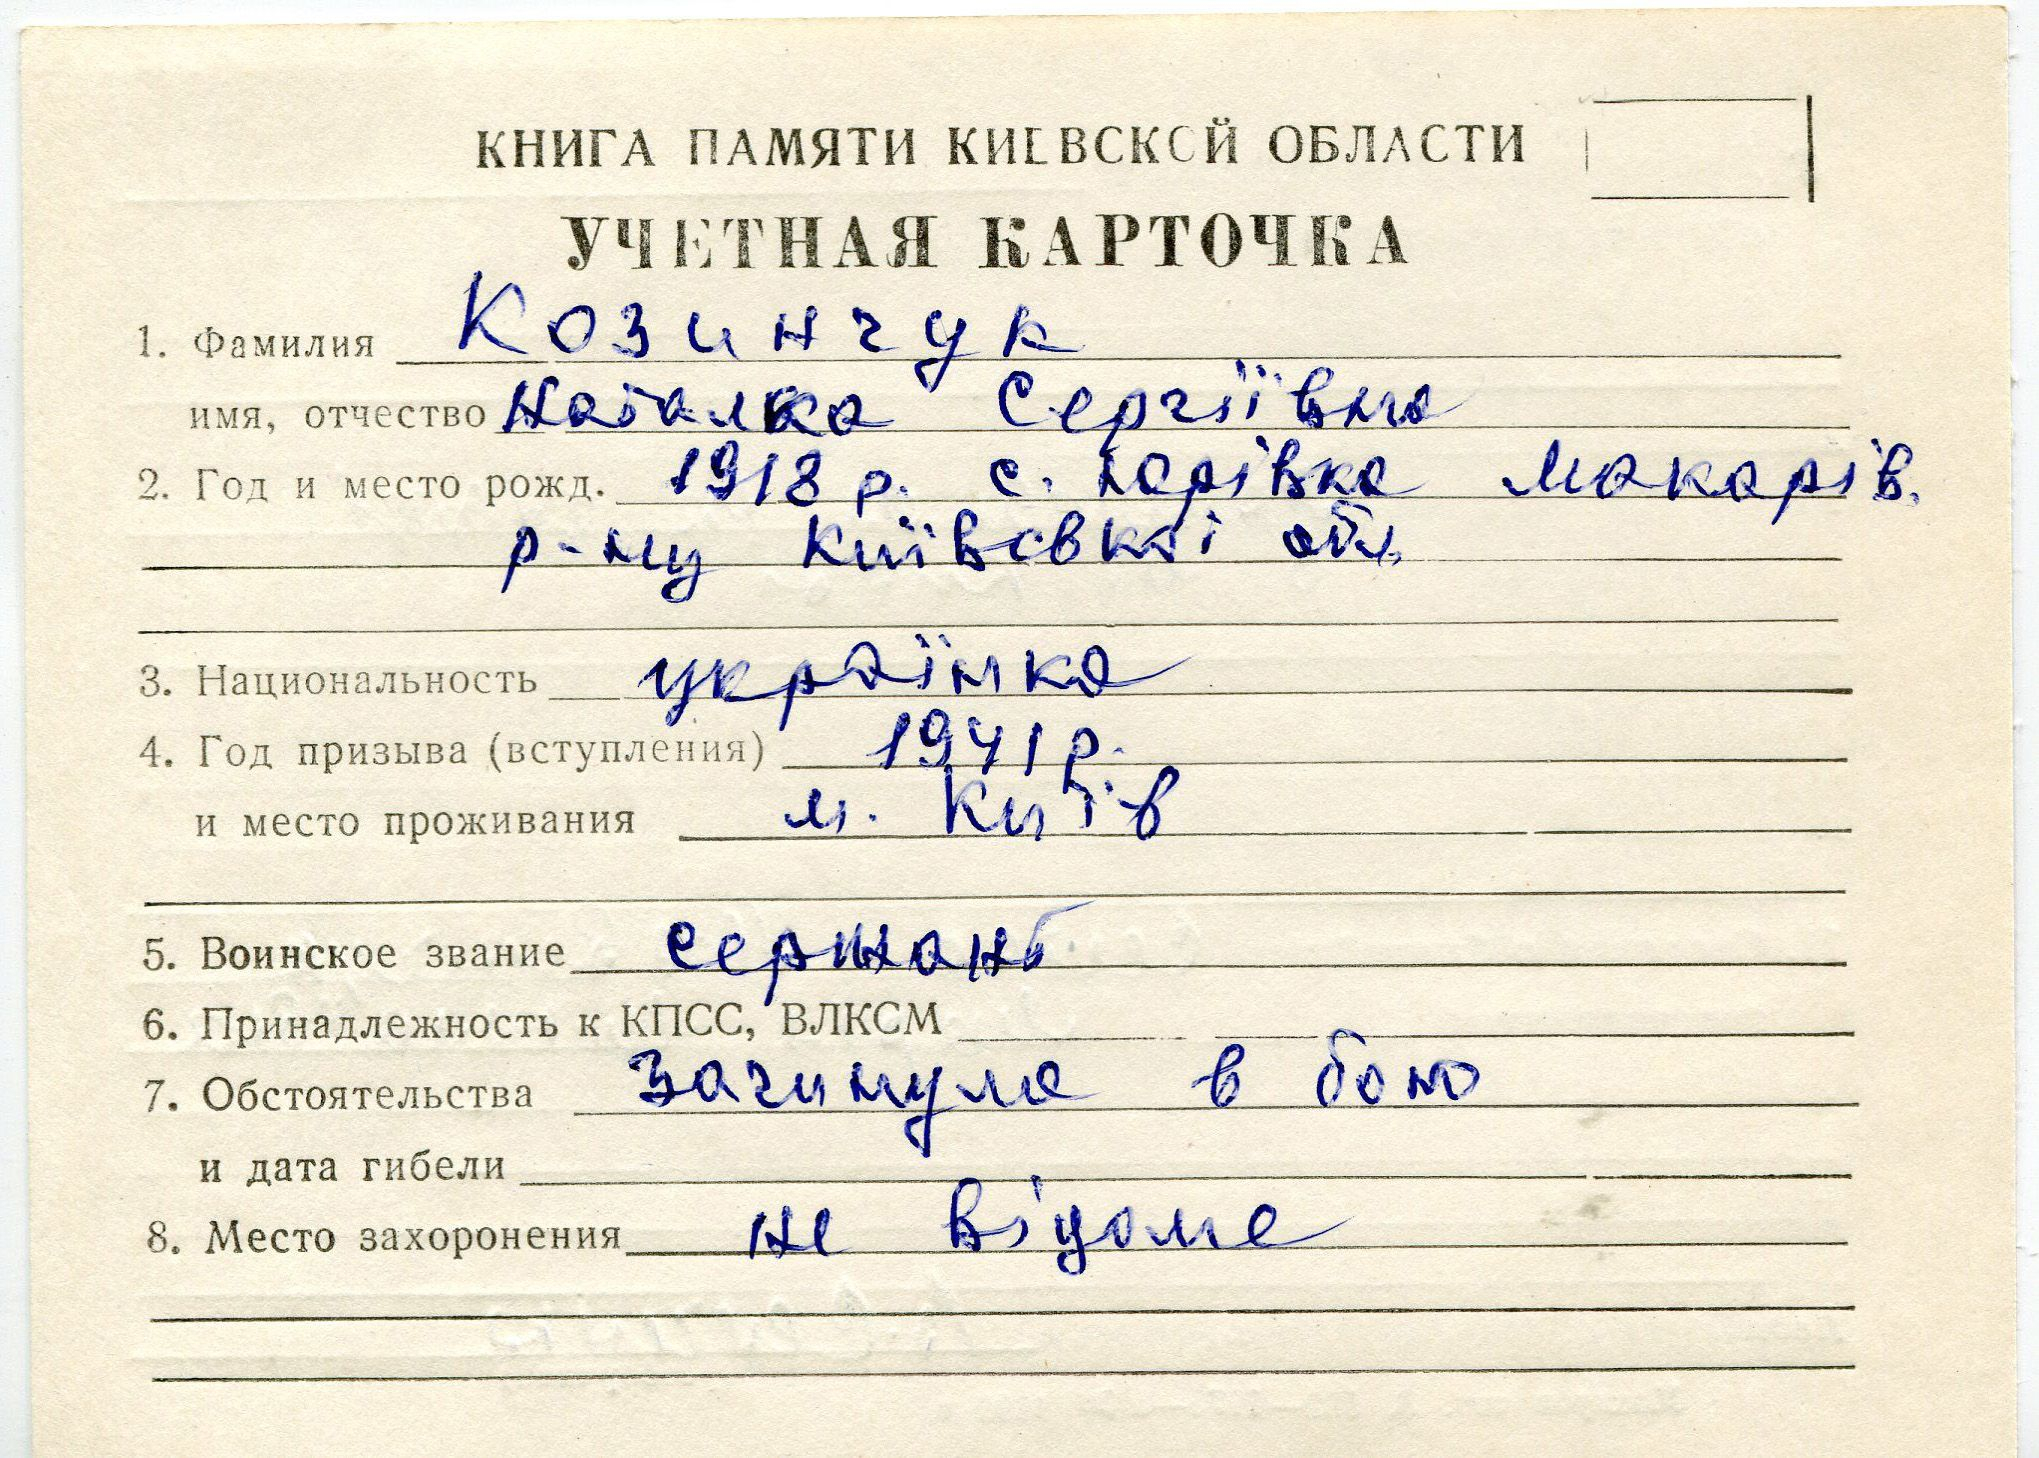 КНИГА ПАМЯТИ КИЕВСКОЙ ОБЛАСТИ
УЧЕТНАЯ КАРТОЧКА
1. Фамилия Козинчук
имя, отчество Наталка Сергіївна
2. Год и место рожд. 1918 р. с. Макарів.
р-ну Київсвкоі обл.
3. Национальность українка
4. Год призыва (вступления) 1941 р.
и место проживания м. Київ
5. Воинское звание сержант
6. Принадлежность к КПСС, ВЛКСМ
7. Обстоятельства Загинула в бою
и дата гибели
8. Место захоронения не відоме